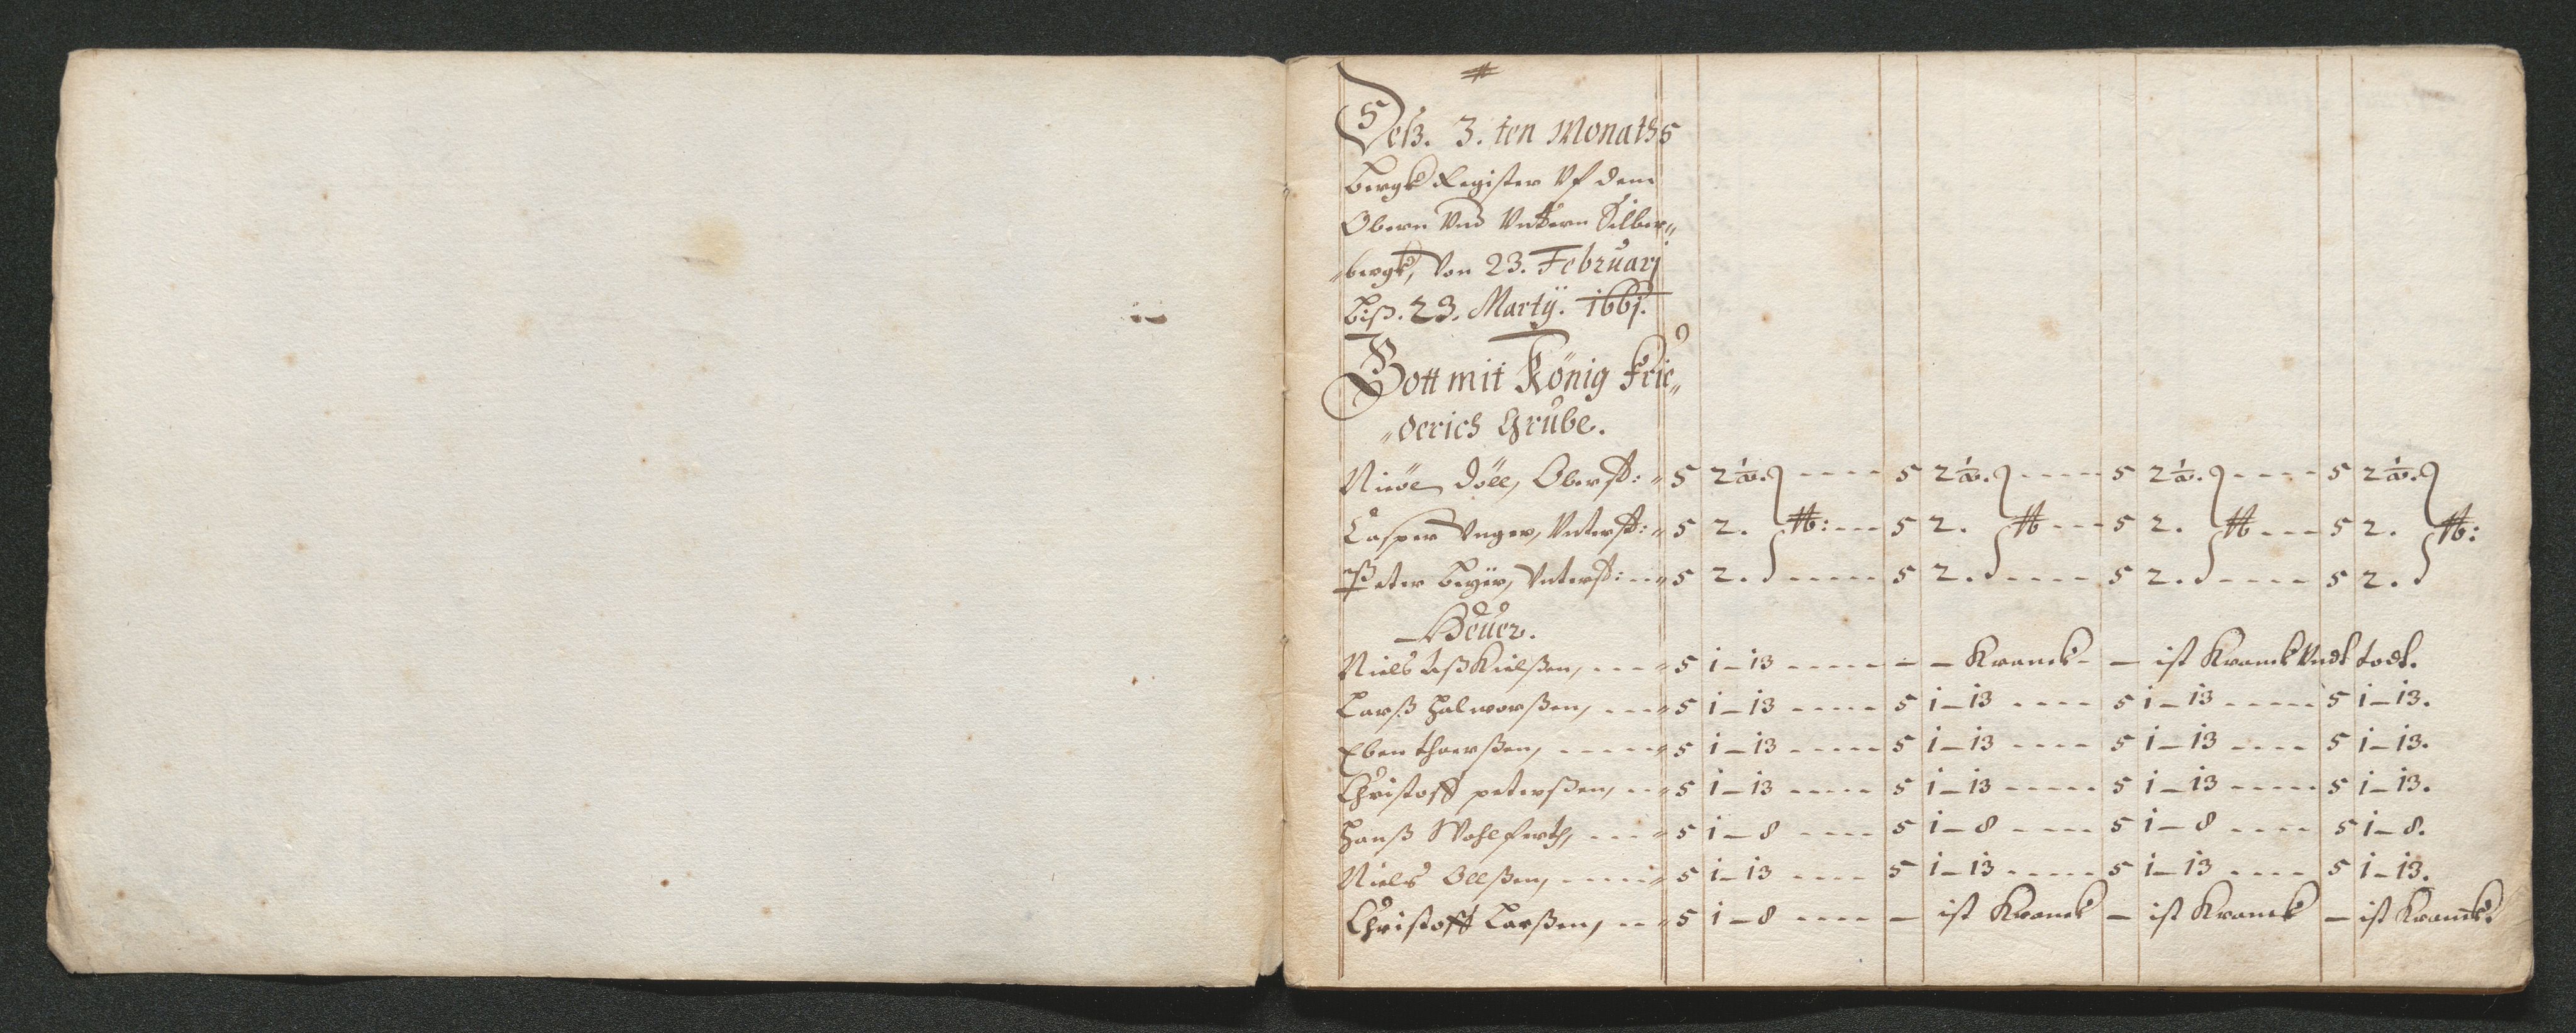 Deß. 3. ten Monaths
Bergk Register Vf dem
Obern Vnd Vntern Silber„
„bergk, Von 23. Februarj
Biß. 23. Martÿ. 1661.
Gott mit König Frie„
„derich Grube.
Döll, Oberst: 5 2½. 5 2½. 5 2½. 5 2½.
Casper Unger, Vnterst: 5 2. 5 2. 5 2. 5 2.
Peter Beÿer, Vnterst: 5 2. 5 2. 5 2. 5 2.
Heuer.
Niels Kielßen, 5 i–i3 – Kranck – ist Kranck Vndt todt.
Larß Halworßen, 5 i–i3 5 i–i3 5 i–i3 5 i–i3.
Eben Thorßen, 5 i–i3 5 i–i3 5 i–i3 5 i–i3.
Christoff peterßen, 5 i–i3 5 i–i3 5 i–i3 5 i–i3.
Hanß Wohlferth, 5 i–8 5 i–8 5 i–8 5 i–8.
Niels Ollßen, 5 i–i3 5 i–i3 5 i–i3 5 i–i3.
Christoff Larßen, 5 i–8 – ist Kranck – ist Kranck – ist Kranck.